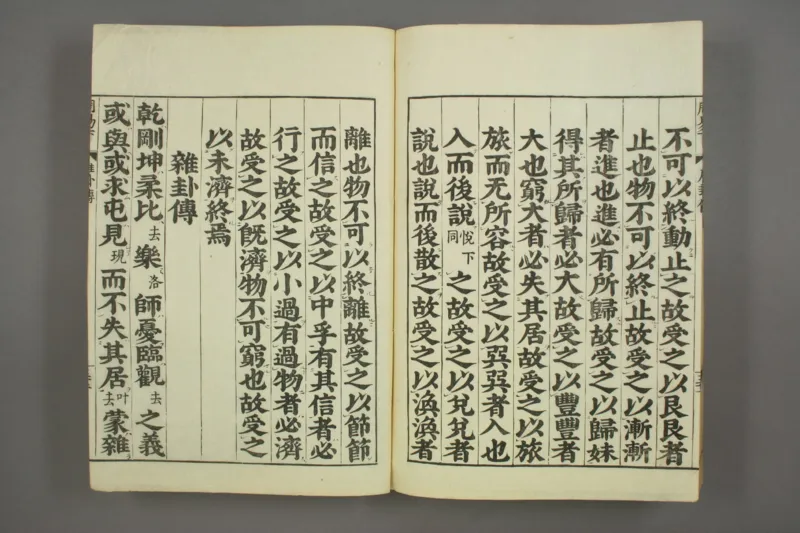 不可以終動止之故受之以艮艮者
止也物不可以終止故受之以漸漸
者進也進必有所歸故受之以歸妹
得其所歸者必大故受之以豐豐者
大也窮大者必失其居故受之以旅
旅而无所容故受之以巽巽者入也
入而後說悅下同之故受之以兌兌者
說也說而後散之故受之以渙渙者
離也物不可以終離故受之以節節
而信之故受之以中孚有其信者必
行之故受之以小過有過物者必濟
故受之以旣濟物不可窮也故受之
以未濟終焉
雜卦傳
乾剛坤柔比去樂洛師憂臨觀去之義
或與或求屯見現而不失其居叶去蒙雜
雜卦傳